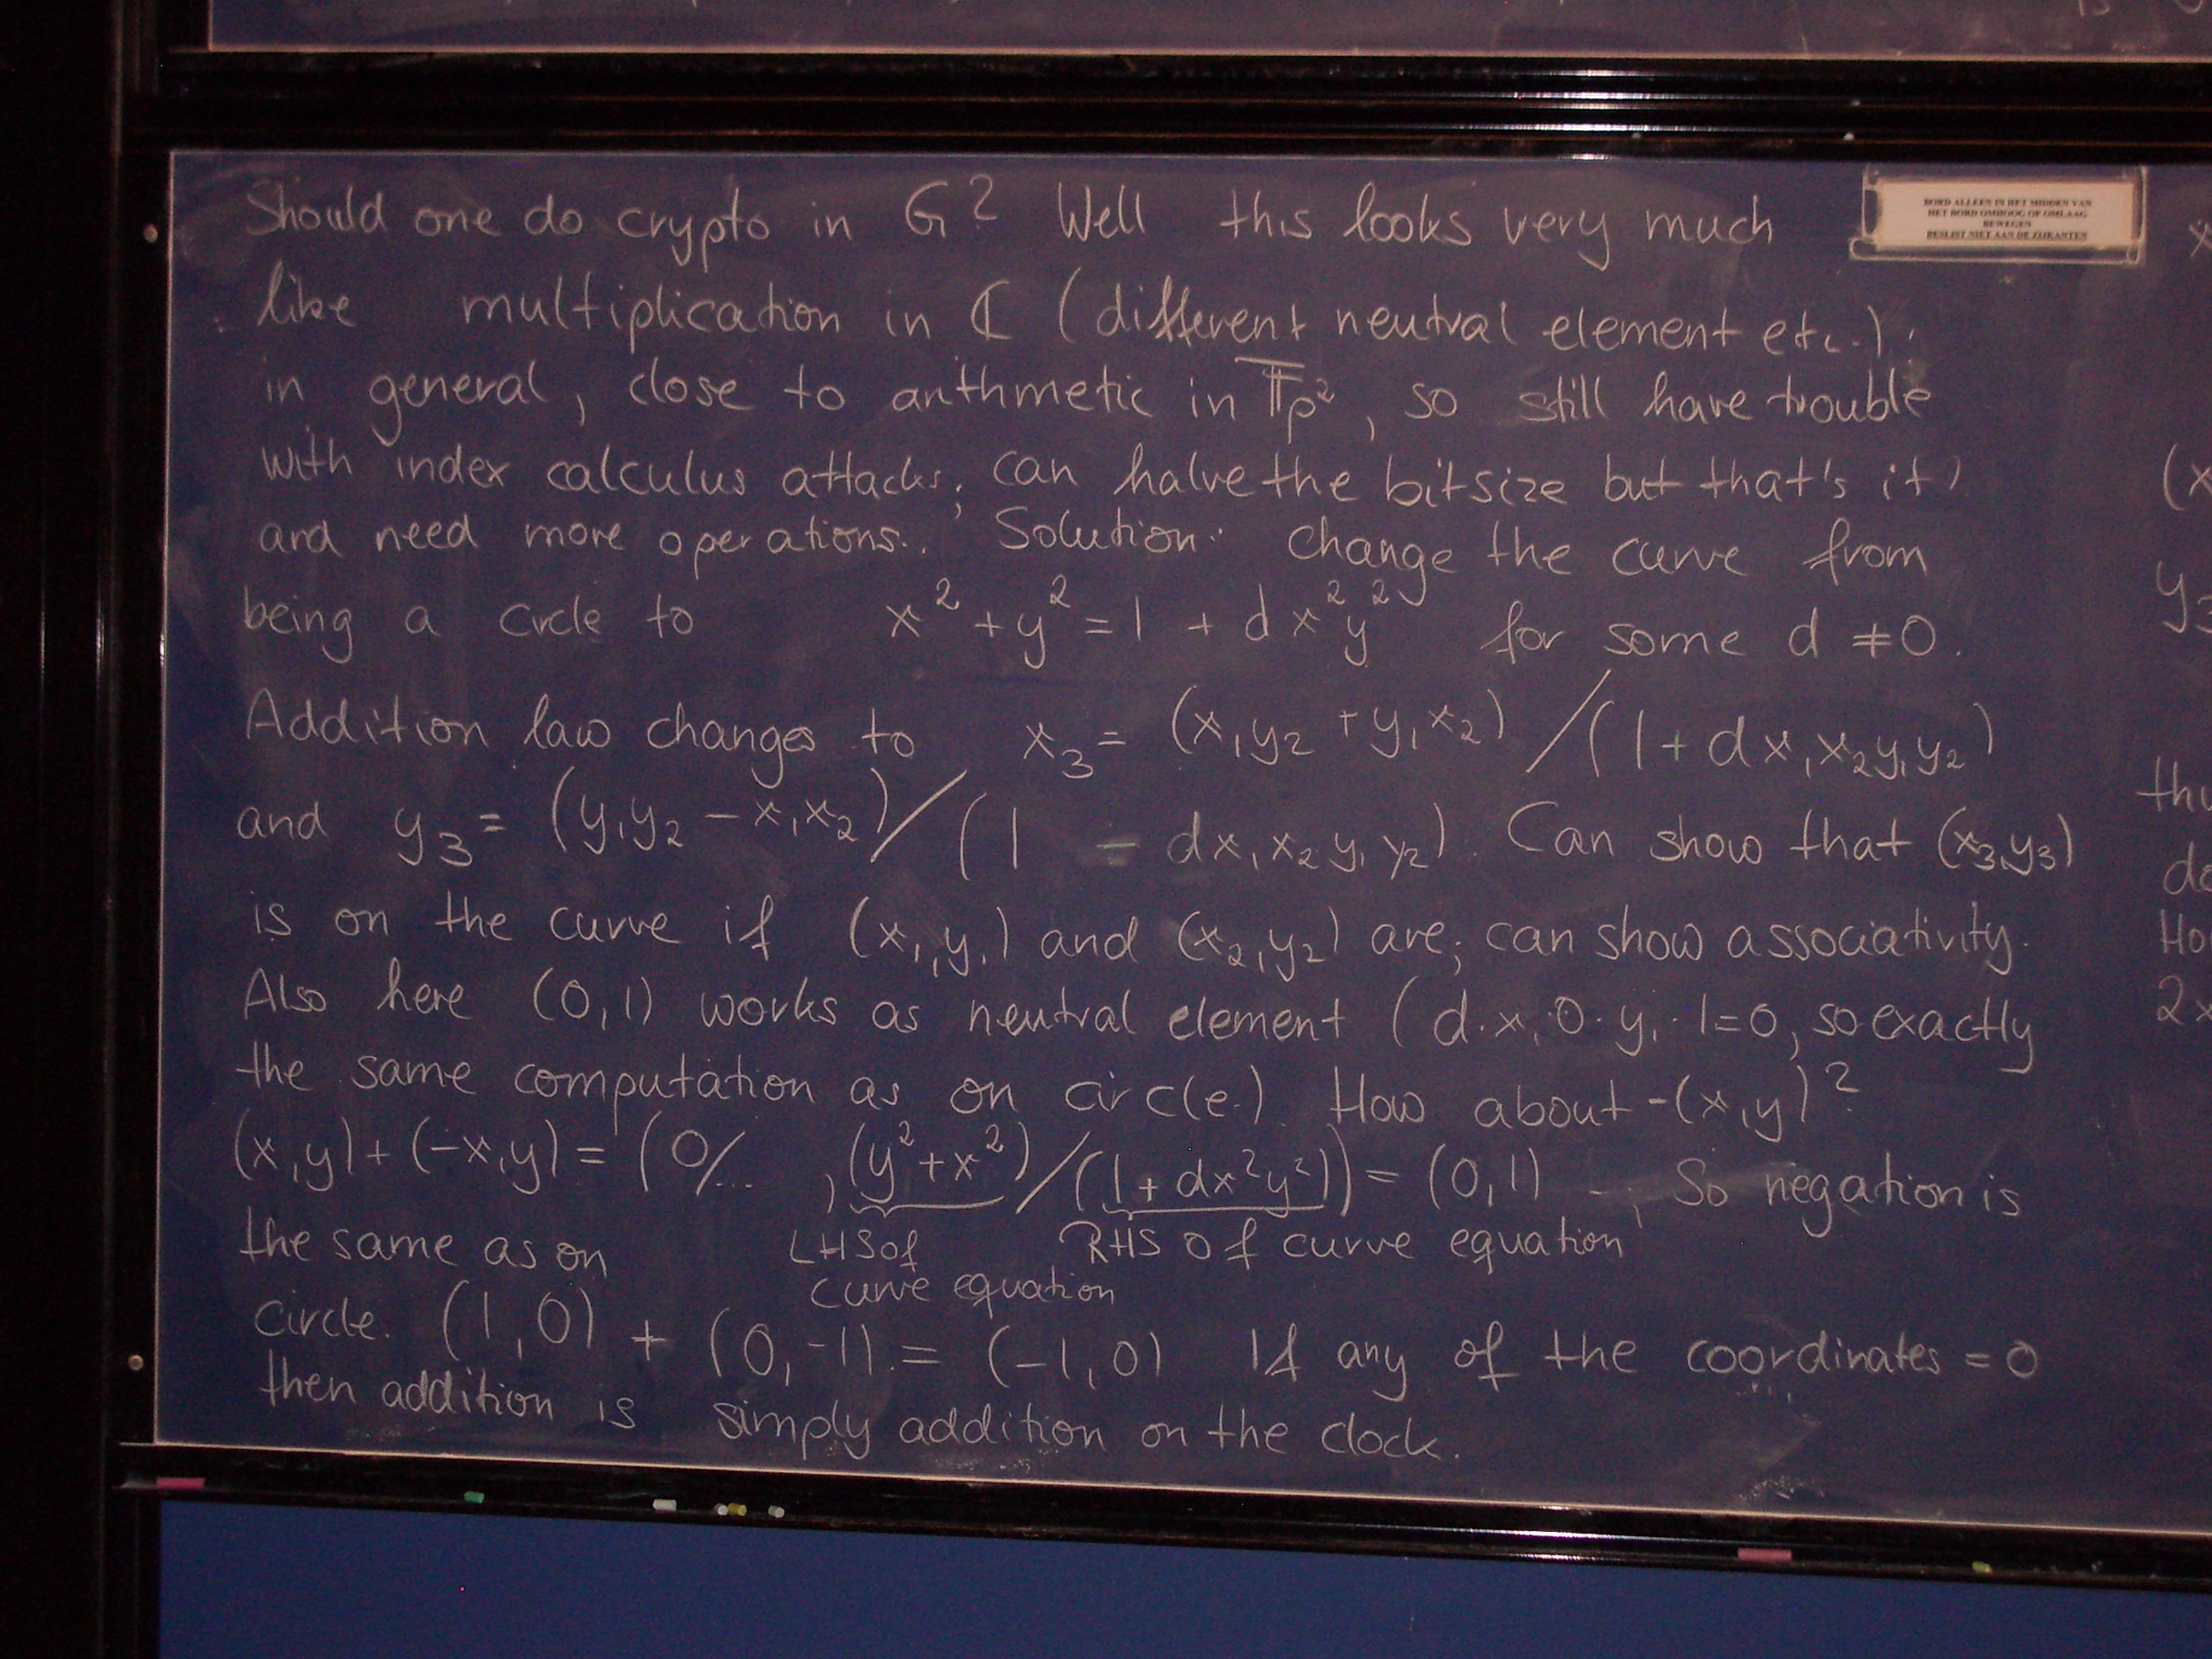 Should one do crypto in G? Well this looks very much
BORD ALLEEN IN HET MIDDEN VAN
HET BORD OMHOOG OF OMLAAG
BEWEGEN
BESLIST NIET AAN DE ZIJKANTEN
like multiplication in ℂ (different neutral element etc.);
in general, close to arithmetic in 𝔽p², so still have trouble
with index calculus attacks; can halve the bitsize but that's it,
and need more operations. Solution: change the curve from
being a circle to x² + y² = 1 + dx²y² for some d ≠ 0.
Addition law changes to x₃ = (x₁y₂ + y₁x₂) / (1 + dx₁x₂y₁y₂)
and y₃ = (y₁y₂ − x₁x₂) / (1 − dx₁x₂y₁y₂). Can show that (x₃,y₃)
is on the curve if (x₁,y₁) and (x₂,y₂) are; can show associativity.
Also here (0,1) works as neutral element (d·x₁·0·y₁·1=0, so exactly
the same computation as on circle.) How about -(x,y)?
(x,y)+(-x,y) = (0/... , (y²+x²)/(1+dx²y²)) = (0,1) . So negation is
the same as on LHS of RHS of curve equation
curve equation
circle. (1,0) + (0,-1) = (-1,0) If any of the coordinates = 0
then addition is simply addition on the clock.